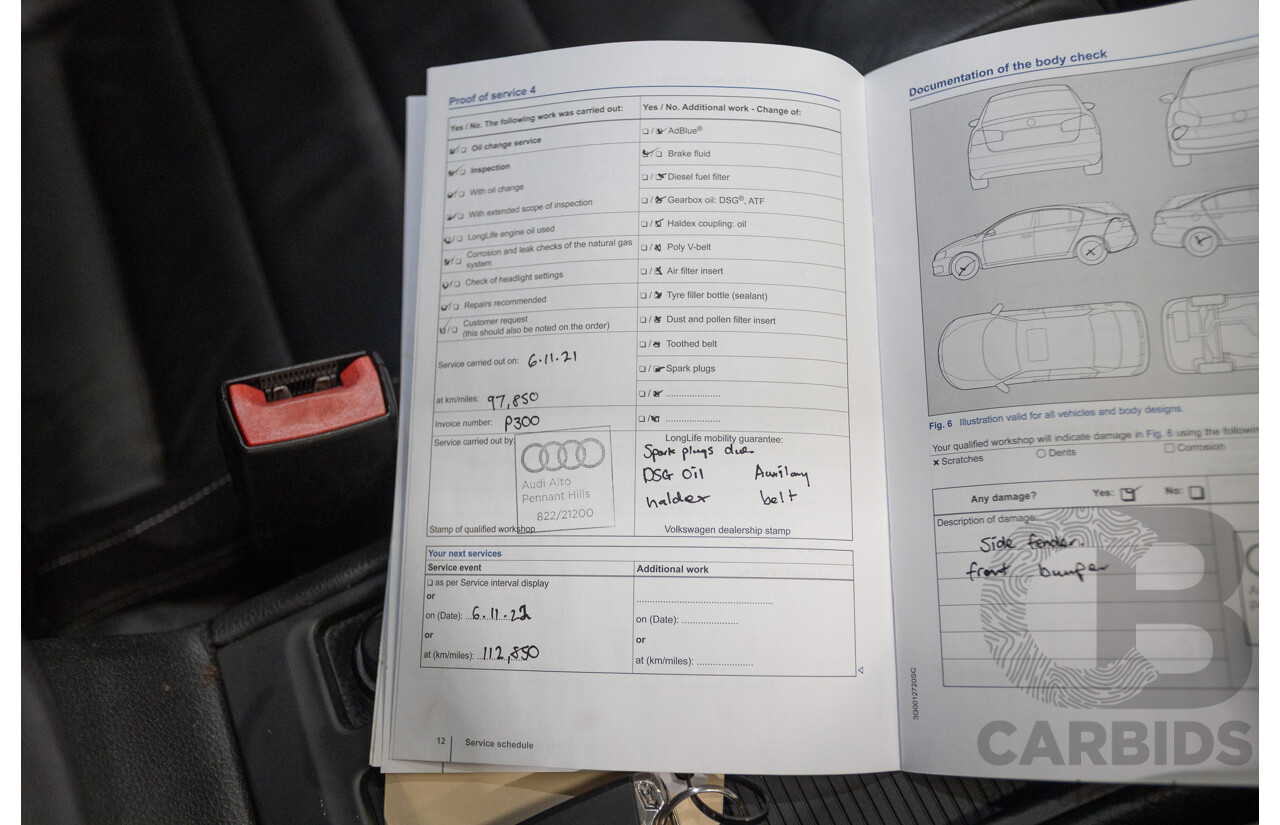 Proof of service 4
Yes / No. The following work was carried out:
Oil change service
Inspection
With oil change
With extended scope of inspection
LongLife engine oil used
Corrosion and leak checks of the natural gas
system
Check of headlight settings
Repairs recommended
Customer request
(this should also be noted on the order)
Service carried out on: 6.11.21
at km/miles: 97,850
Invoice number: P300
Service carried out by:
Audi Alto
Pennant Hills
822/21200
Stamp of qualified workshop
Yes / No. Additional work - Change of:
AdBlue®
Brake fluid
Diesel fuel filter
Gearbox oil: DSG®, ATF
Haldex coupling: oil
Poly V-belt
Air filter insert
Tyre filler bottle (sealant)
Dust and pollen filter insert
Toothed belt
Spark plugs
LongLife mobility guarantee:
Spark plugs due
DSG Oil Auxilary
haldex belt
Volkswagen dealership stamp
Your next services
Service event
as per Service interval display
or
on (Date): 6.11.22
or
at (km/miles): 112,850
Additional work
on (Date):
or
at (km/miles):
12 Service schedule
Documentation of the body check
Fig. 6 Illustration valid for all vehicles and body designs.
Your qualified workshop will indicate damage in Fig. 6 using the
x Scratches Dents Corrosion
Any damage? Yes: No:
Description of damage:
Side fender.
front bumper
3G0012720SG
CARBIDS